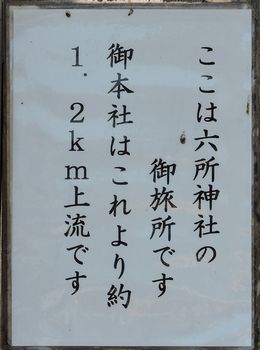 ここは六所神社の
御旅所です
御本社はこれより約
１．２ｋｍ上流です